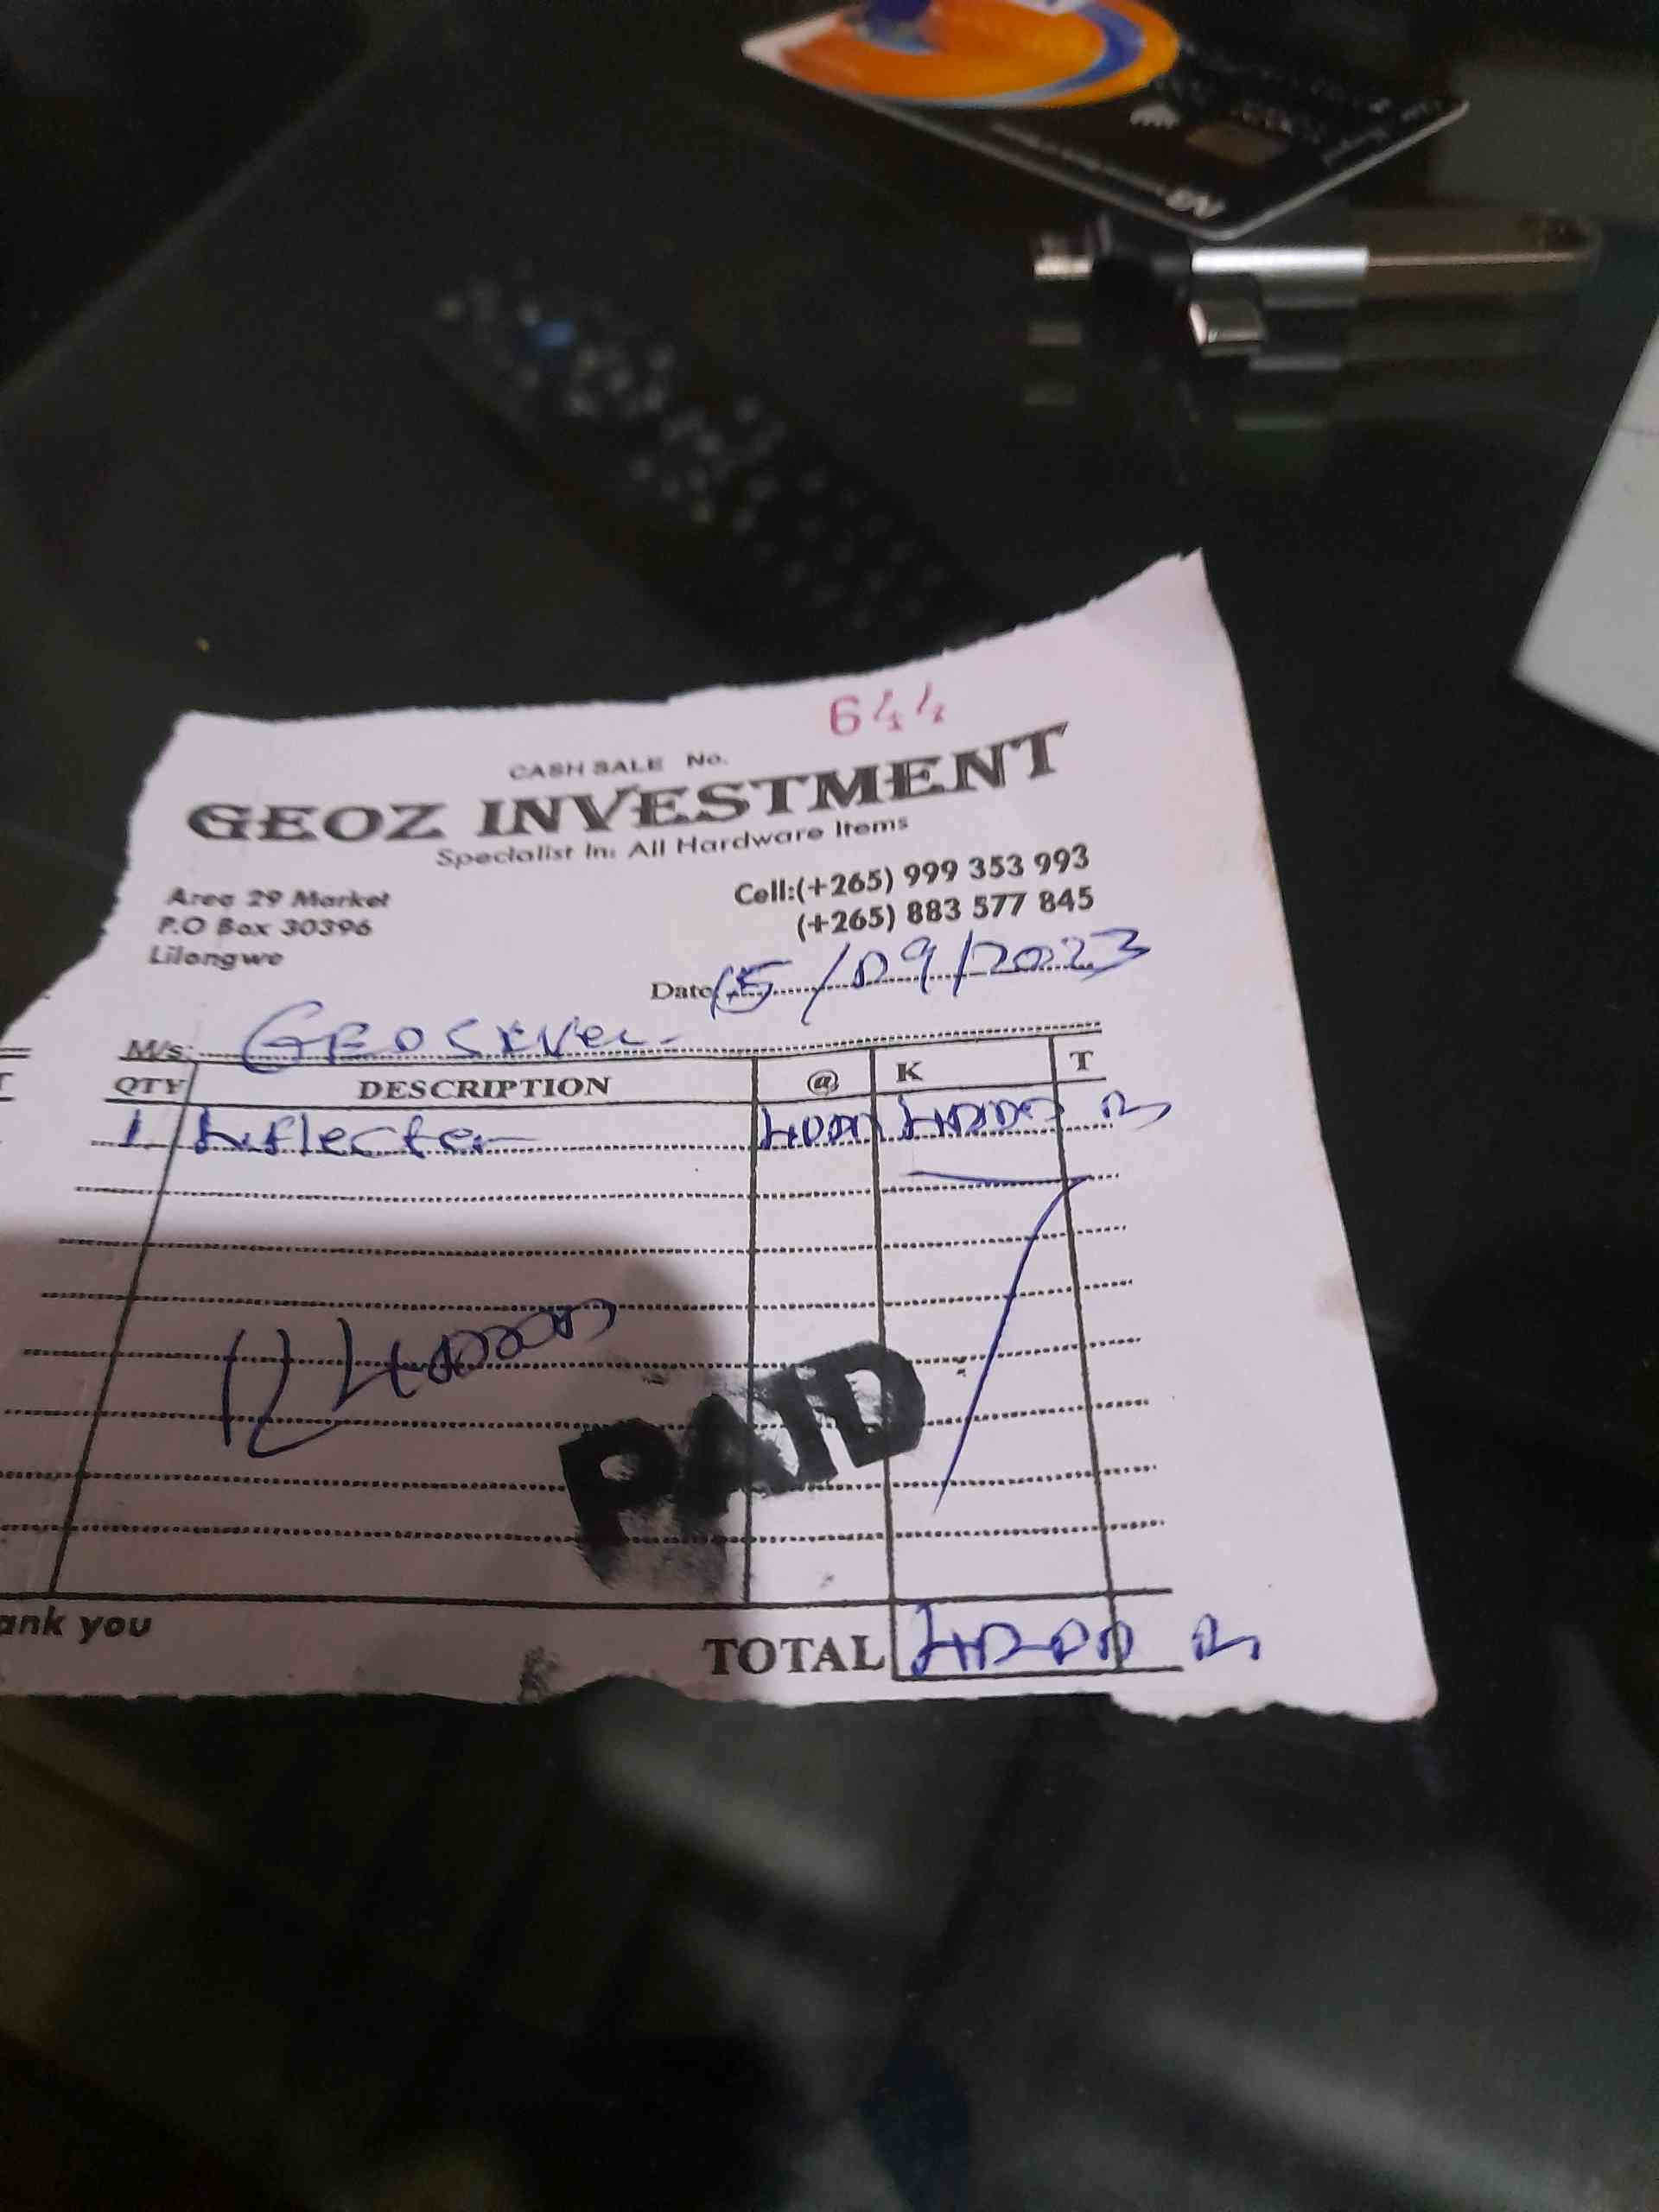 644
CASH SALE No.
GEOZ INVESTMENT
Specialist In: All Hardware Items
Area 29 Market
P.O Box 30396
Lilongwe
Cell:(+265) 999 353 993
(+265) 883 577 845
Date 15/09/2023
M/s:
QTY DESCRIPTION @ K T
1 4000 4000
PAID
ank you
TOTAL 4000